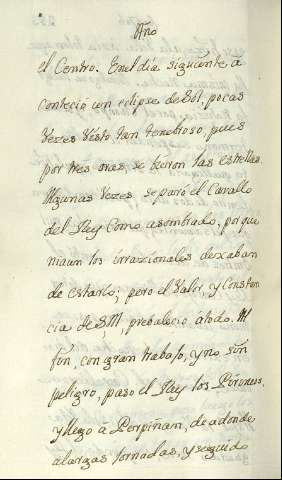 Año
el Centro. En el dia siguiente a
conteció un eclipse de Sol, pocas
vezes visto tan tenebroso, pues
por tres oras, se bieron las estrellas.
Algunas vezes se paró el Cavallo
del Rey como asombrado, porque
ni aun los irrazionales dexaban
de estarlo; pero el Valor, y Constan
cia de S.M, prebalecio a todo. Al
fin, con gran trabajo, y no sin
peligro, paso el Rey los Pirineos,
y llego á Perpiñan, de adonde
a largas Jornadas, y seguido